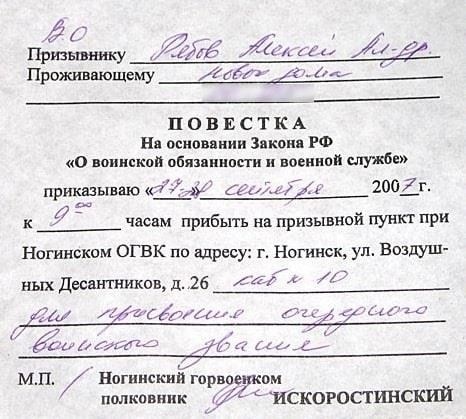 ВО
Призывнику Рябов Алексей Ал-др.
Проживающему новое дома
ПОВЕСТКА
На основании Закона РФ
«О воинской обязанности и военной службе»
приказываю «27-28 сентября 2007 г.
к 9 00 часам прибыть на призывной пункт при
Ногинском ОГВК по адресу: г. Ногинск, ул. Воздуш-
ных Десантников, д. 26 каб N 10
для присвоения очередного
воинского звания
М.П. Ногинский горвоенком
полковник ИСКОРОСТИНСКИЙ